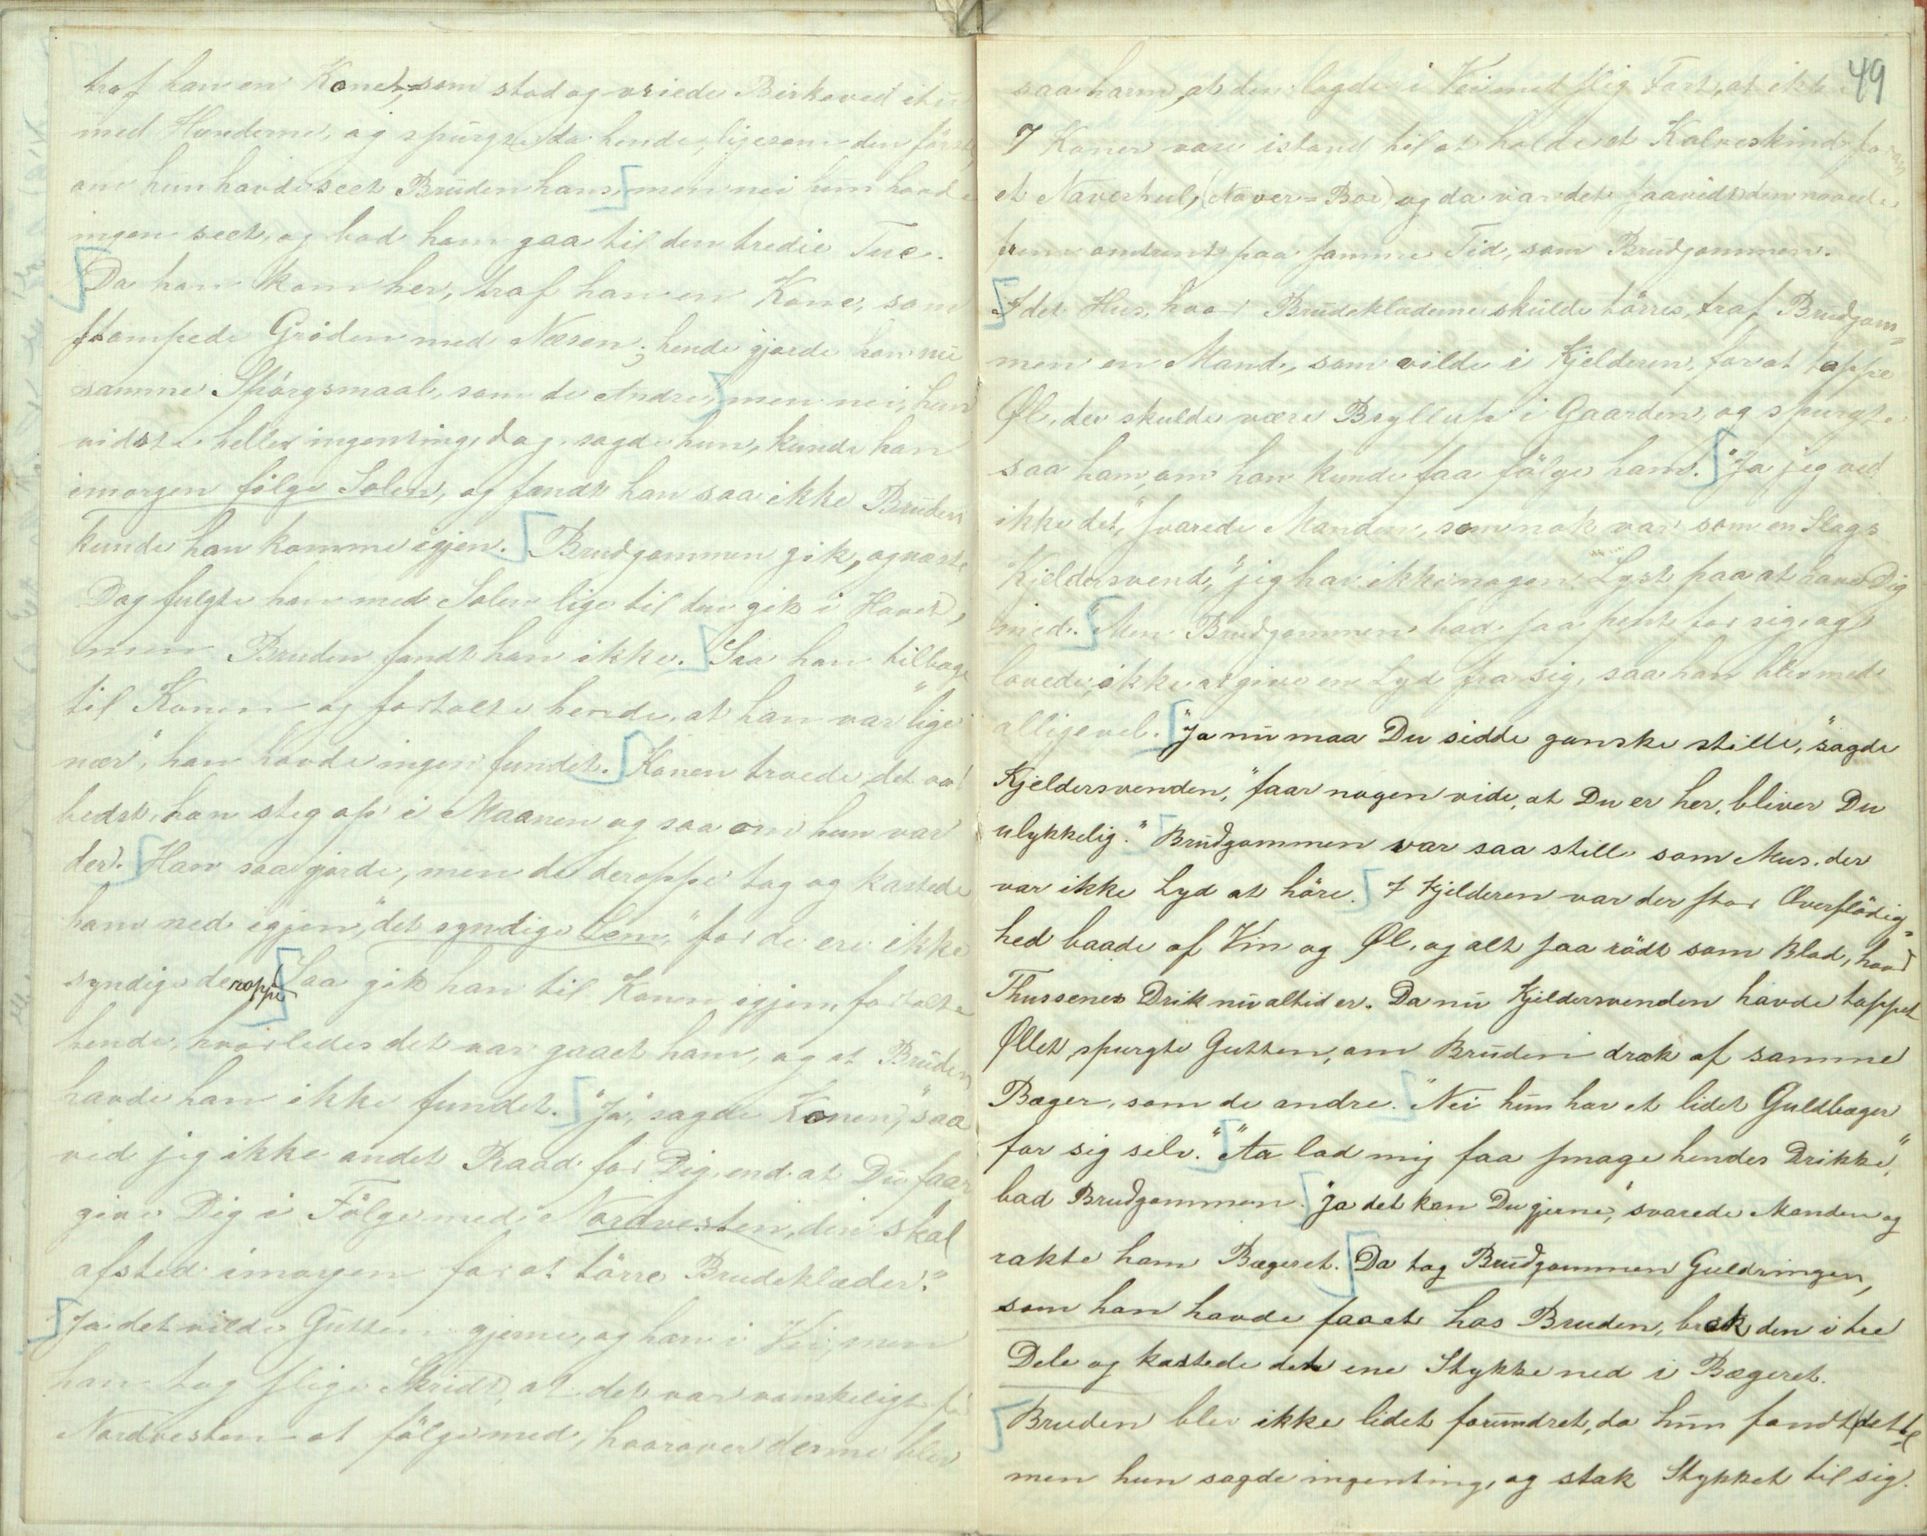 traf han en Kone, som stod og vriede Birkeved itu
med Hænderne, og spurgte da hende, ligesom den første,
om hun havde seet Bruden hans, men nei hun havde
ingen seet, og bad ham gaa til den tredie Tue.
Da han kom her, traf han en Kone, som
stampede Grøden med Næsen; hende gjorde han nu
samme Spörgsmaal, som de Andre, men nei, hun
vidste heller ingenting, dog sagde hun, kunde han
imorgen følge Solen, og fandt han saa ikke Bruden
kunde han komme igjen. Brudgommen gik, og næste
Dag fulgte han med Solen lige til den gik i Havet,
men Bruden fandt han ikke. Saa han tilbage
til Konen og fortalte hende, at han var "lige
nær", han havde ingen fundet. Konen troede, det var
bedst, han steg op i Maanen og saa om hun var
der. Han saa gjorde, men de deroppe tog og kastede
ham ned igjen, "det syndige Lem", for de ere ikke
syndige deroppe. Saa gik han til Konen igjen, fortalte
hende, hvorledes det var gaaet ham, og at Bruden
havde han ikke fundet. "Ja", sagde Konen, "saa
ved jeg ikke andet Raad for Dig, end at Du faar
give Dig i Fölge med Nordvesten, den skal
afsted imorgen for at törre Brudeklæder."
Ja det vilde Gutten gjerne, og han i Vei, men
han tog slige Skridt, at det var vanskeligt for
Nordvesten at følge med, hvorover denne blev
49
saa harm, at den lagde i Vei med slig Fart, at ikke
7 Koner vare istand til at holde et Kalveskind for
et Naverhul, (Naver = Bor) og da var det saavidt den naaede
frem omtrent paa samme Tid, som Brudgommen.
I det Hus, hvor Brudeklæderne skulde törres, traf Brudgom=
men en Mand, som vilde i Kjelderen, for at tappe
Øl, der skulde være Bryllup i Gaarden, og spurgte
saa ham, om han kunde faa følge ham. "Ja jeg ved
ikke det," svarede Manden, som nok var som en Slags
Kjeldersvend, "jeg har ikke nogen Lyst paa at have Dig
med." Men Brudgommen bad saa pent for sig, og
lovede, ikke at give en Lyd fra sig, saa han blev med
alligevel. "Ja nu maa Du sidde ganske stille," sagde
Kjeldersvenden, "faar nogen vide, at Du er her, bliver Du
ulykkelig." Brudgommen var saa still som Mus, der
var ikke Lyd at höre. I Kjelderen var der stor Overflödig=
hed baade af Vin og Øl, og alt saa rödt som Blod, hvad
Thussenes Drik nu altid er. Da nu Kjeldersvenden havde tappet
Øllet, spurgte Gutten, om Bruden drak af samme
Bæger, som de andre. "Nei hun har et lidet Guldbæger
for sig selv." "Aa lad mig faa smage hendes Drikke,"
bad Brudgommen. "Ja det kan Du gjerne," svarede Manden og
rakte ham Bægeret. Da tog Brudgommen Guldringen,
som han havde faaet hos Bruden, brak den i tre
Dele og kastede det ene Stykke ned i Bægeret.
Bruden blev ikke lidet forundret, da hun fandt dette,
men hun sagde ingenting, og stak Stykket til sig.